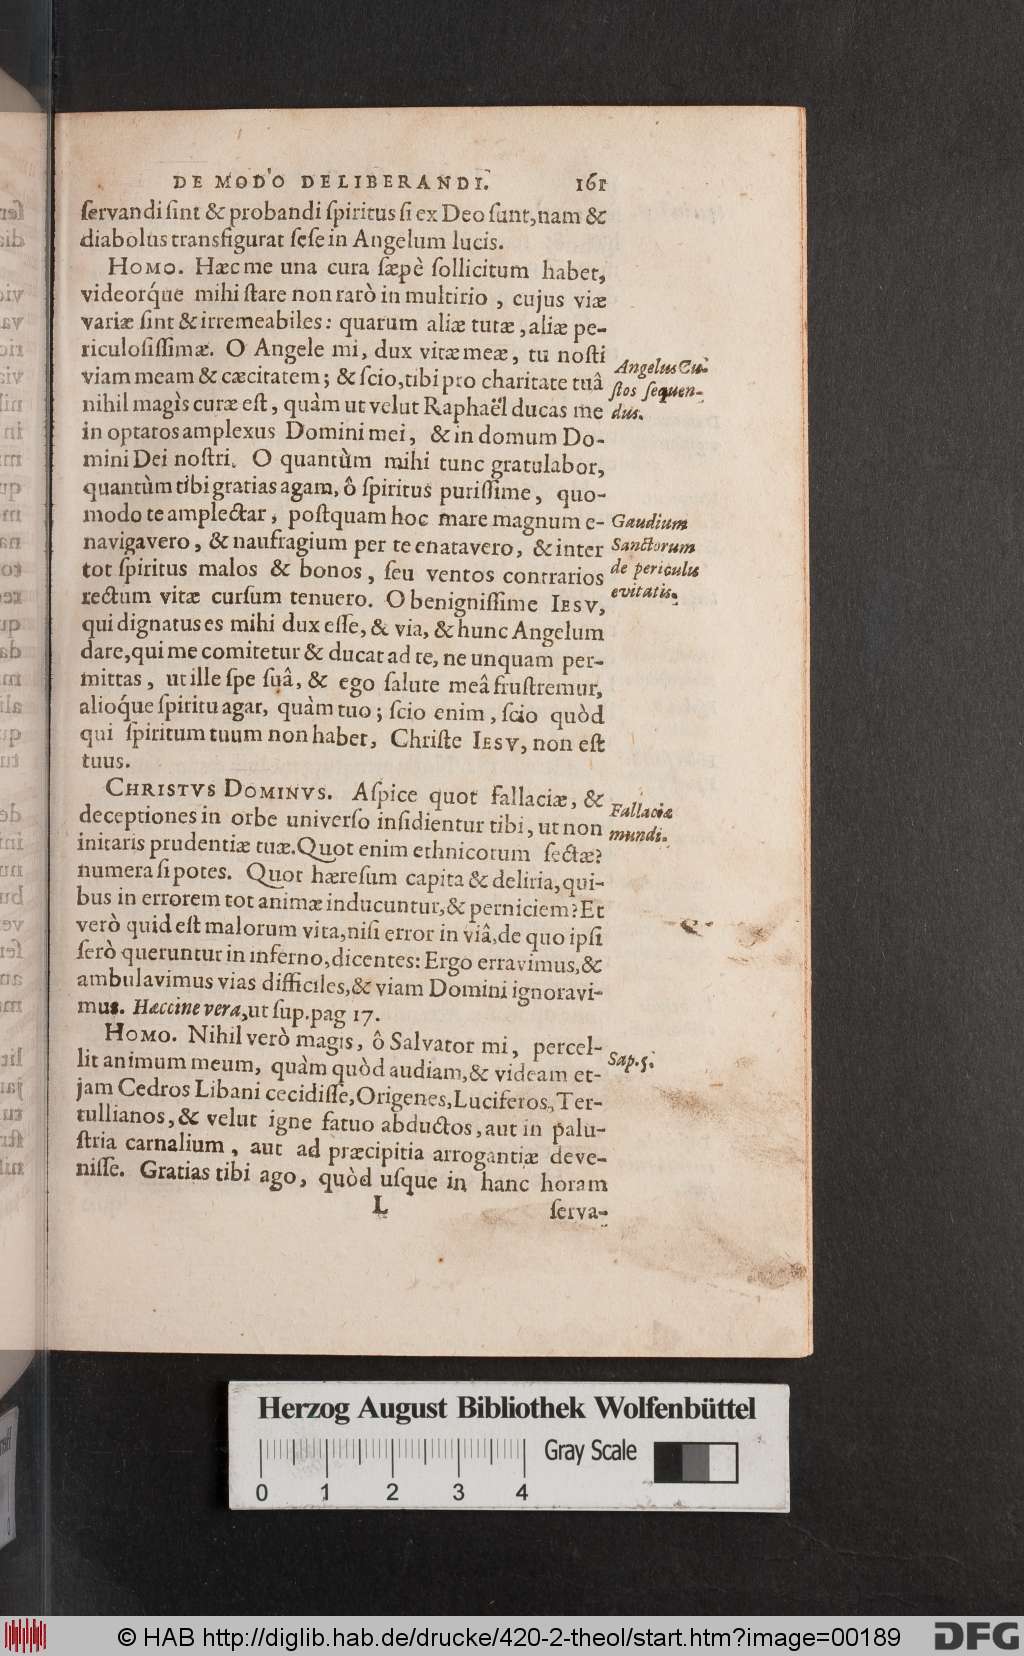 DE MODO DELIBERANDI. 161
ſervandi ſint & probandi ſpiritus ſi ex Deo ſunt, nam &
diabolus transfigurat ſeſe in Angelum lucis.
HOMO. Hæc me una cura ſæpè ſollicitum habet,
videorq́ue mihi ſtare non rarò in multirio, cujus viæ
variæ ſint & irremeabiles: quarum aliæ tutæ, aliæ pe-
riculoſiſſimæ. O Angele mi, dux vitæ meæ, tu noſti
viam meam & cæcitatem; & ſcio, tibi pro charitate tuâ
nihil magìs curæ eſt, quàm ut velut Raphaël ducas me
in optatos amplexus Domini mei, & in domum Do-
mini Dei noſtri. O quantùm mihi tunc gratulabor,
quantùm tibi gratias agam, ô ſpiritus puriſſime, quo-
modo te amplectar, poſtquam hoc mare magnum e-
navigavero, & naufragium per te enatavero, & inter
tot ſpiritus malos & bonos, ſeu ventos contrarios
rectum vitæ curſum tenuero. O benigniſſime IESV,
qui dignatus es mihi dux eſſe, & via, & hunc Angelum
dare, qui me comitetur & ducat ad te, ne unquam per-
mittas, ut ille ſpe ſuâ, & ego ſalute meâ fruſtremur,
alioq́ue ſpiritu agar, quàm tuo; ſcio enim, ſcio quòd
qui ſpiritum tuum non habet, Chriſte IESV, non eſt
tuus.
CHRISTVS DOMINVS. Aſpice quot fallaciæ, &
deceptiones in orbe univerſo inſidientur tibi, ut non
initaris prudentiæ tuæ. Quot enim ethnicorum ſectæ?
numera ſi potes. Quot hæreſum capita & deliria, qui-
bus in errorem tot animæ inducuntur, & perniciem? Et
verò quid eſt malorum vita, niſi error in viâ, de quo ipſi
ſerò queruntur in inferno, dicentes: Ergo erravimus, &
ambulavimus vias difficiles, & viam Domini ignoravi-
mus. Hæccine vera, ut ſup. pag 17.
HOMO. Nihil verò magis, ô Salvator mi, percel-
lit animum meum, quàm quòd audiam, & videam et-
jam Cedros Libani cecidiſſe, Origenes, Luciferos, Ter-
tullianos, & velut igne fatuo abductos, aut in palu-
ſtria carnalium, aut ad præcipitia arrogantiæ deve-
niſſe. Gratias tibi ago, quòd uſque in hanc horam
L ſerva-
Angelus Cu-
ſtos ſequen-
dus.
Gaudium
Sanctorum
de periculis
evitatis.
Fallaciæ
mundi.
Sap. 5.
Herzog August Bibliothek Wolfenbüttel
Gray Scale
0 1 2 3 4
© HAB http://diglib.hab.de/drucke/420-2-theol/start.htm?image=00189
DFG